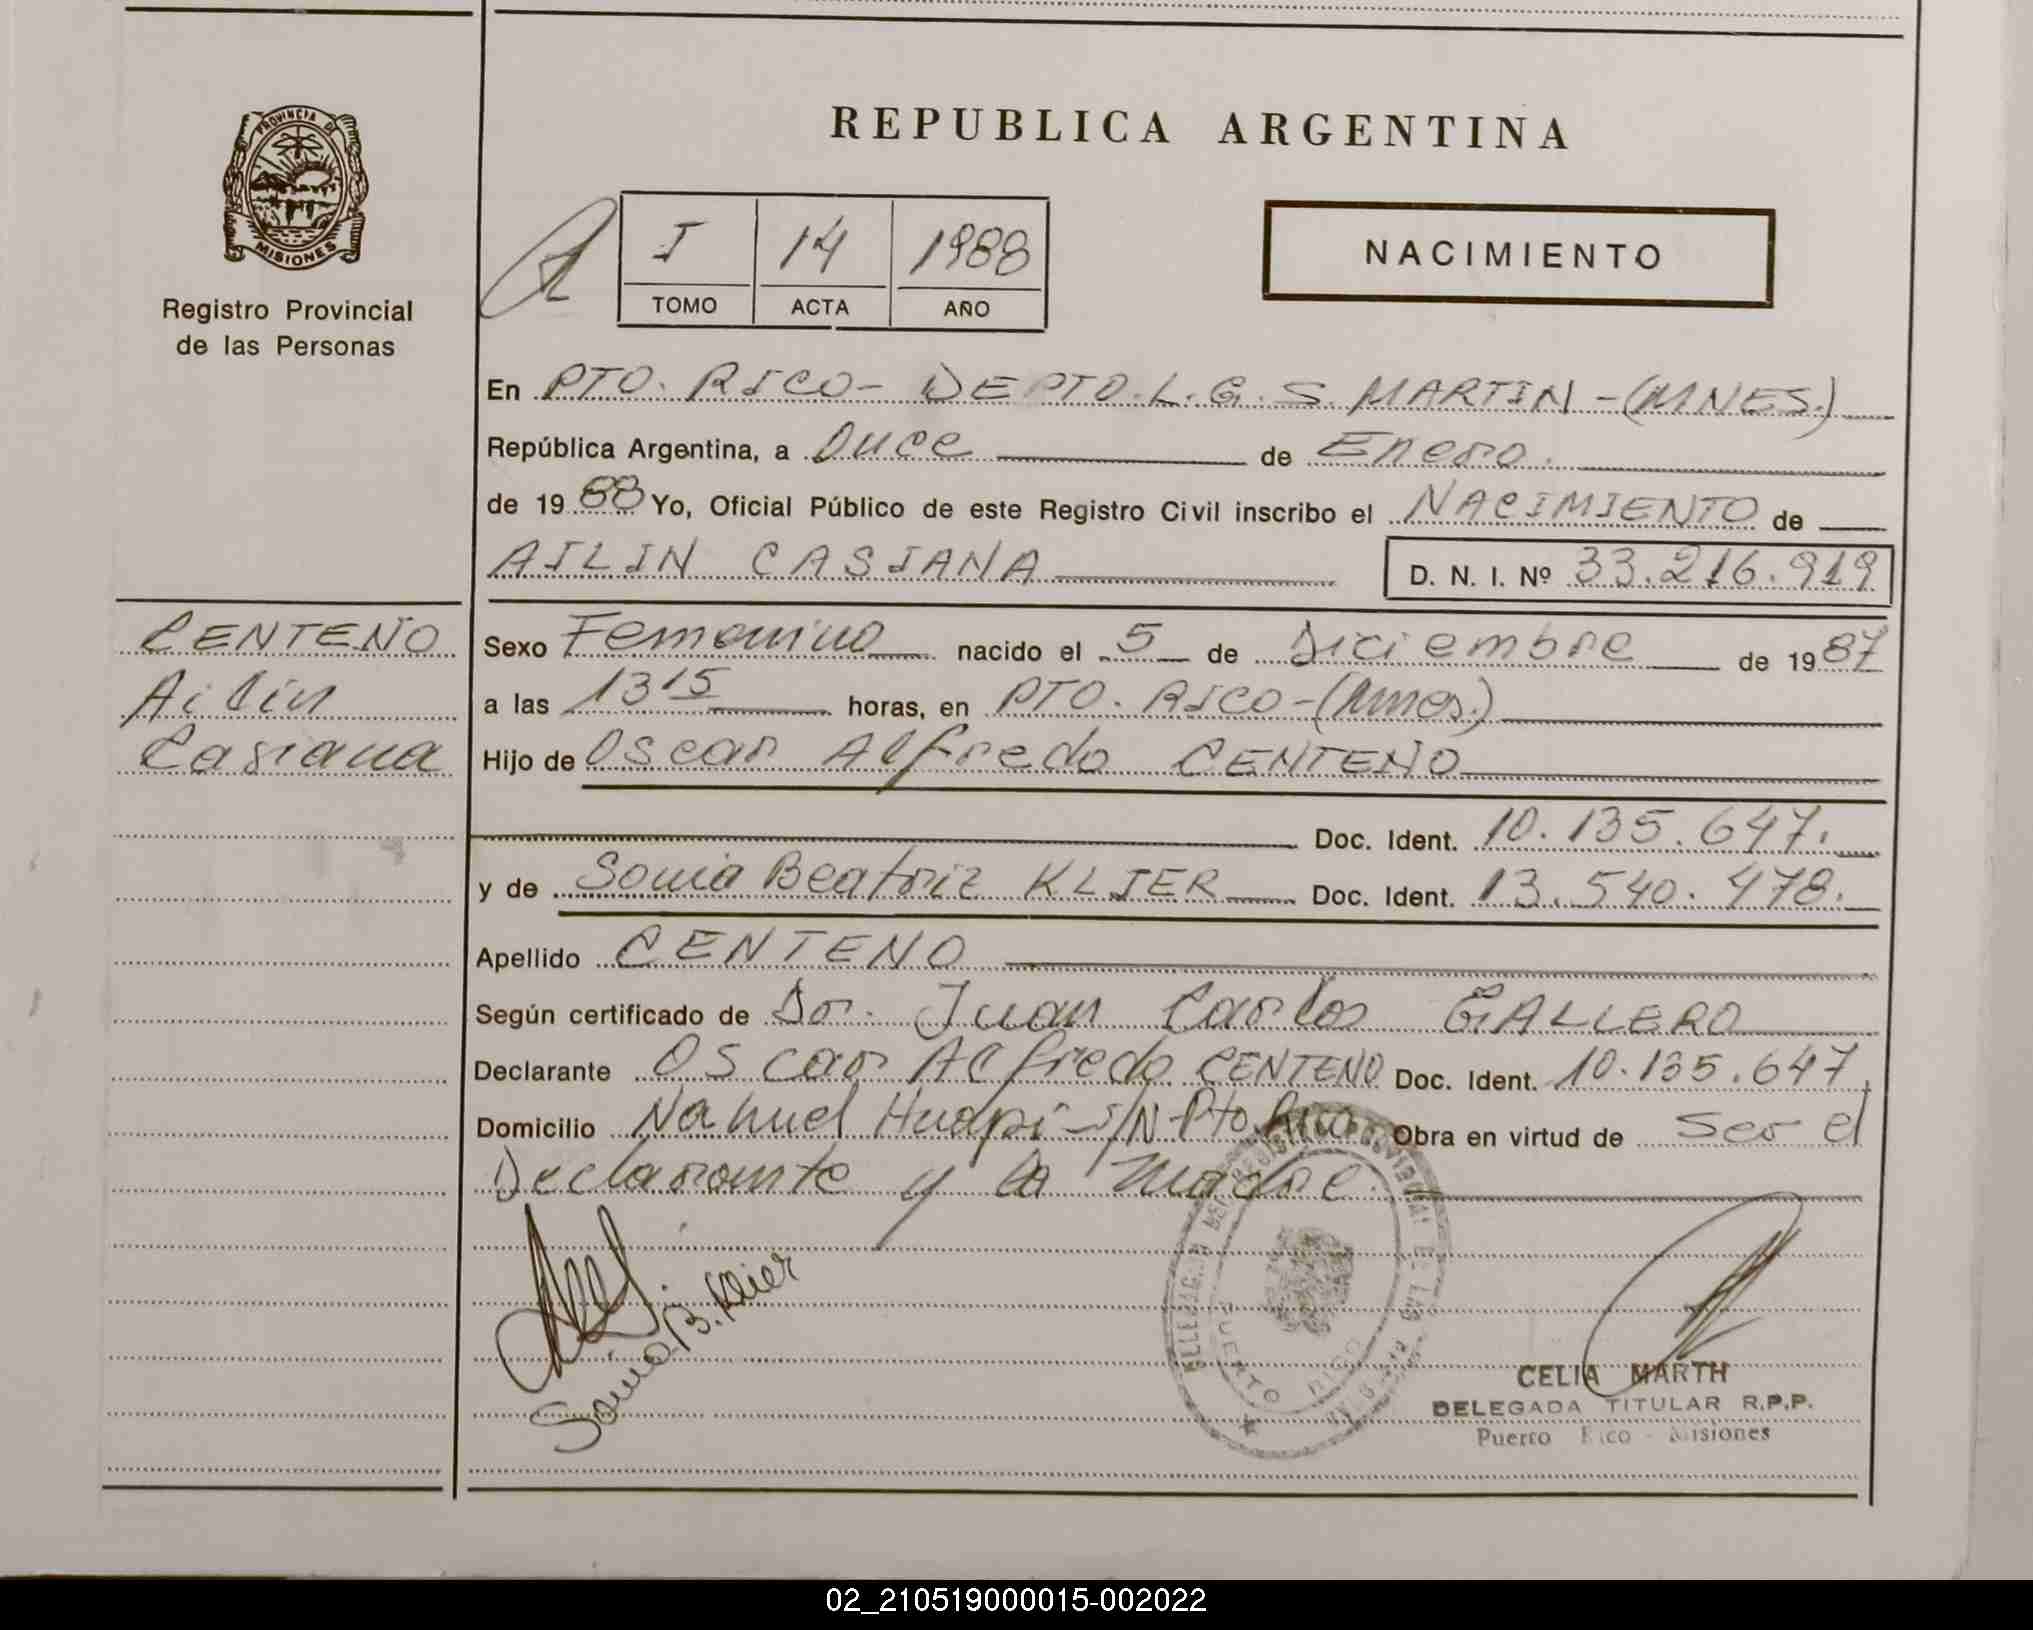 PROVINCIA DE
MISIONES
Registro Provincial
de las Personas
REPUBLICA ARGENTINA
I 14 1988
TOMO ACTA AÑO
NACIMIENTO
En PTO. RICO - DEPTO. L. G. S. MARTIN - (MNES.)
República Argentina, a Once de Enero.
de 19 88 Yo, Oficial Público de este Registro Civil inscribo el NACIMIENTO de
AILIN CASIANA D. N. I. Nº 33.216.919
CENTENO
Ailin
Casiana
Sexo Femenino nacido el 5 de Diciembre de 19 87
a las 13 15 horas, en PTO. RICO - (Mnes.)
Hijo de Oscar Alfredo CENTENO
Doc. Ident. 10.135.647.
y de Sonia Beatriz KLIER Doc. Ident. 13.540.478.
Apellido CENTENO
Según certificado de Dr. Juan Carlos GALLERO
Declarante Oscar Alfredo CENTENO Doc. Ident. 10.135.647.
Domicilio Nahuel Huapi - S/N - Pto. Rico Obra en virtud de ser el
Declarante y la Madre.
Sonia B. Klier
DELEGACION DEL REGISTRO PROVINCIAL DE LAS
PUERTO RICO
CELIA MARTH
DELEGADA TITULAR R.P.P.
Puerto Rico - Misiones
02_210519000015-002022